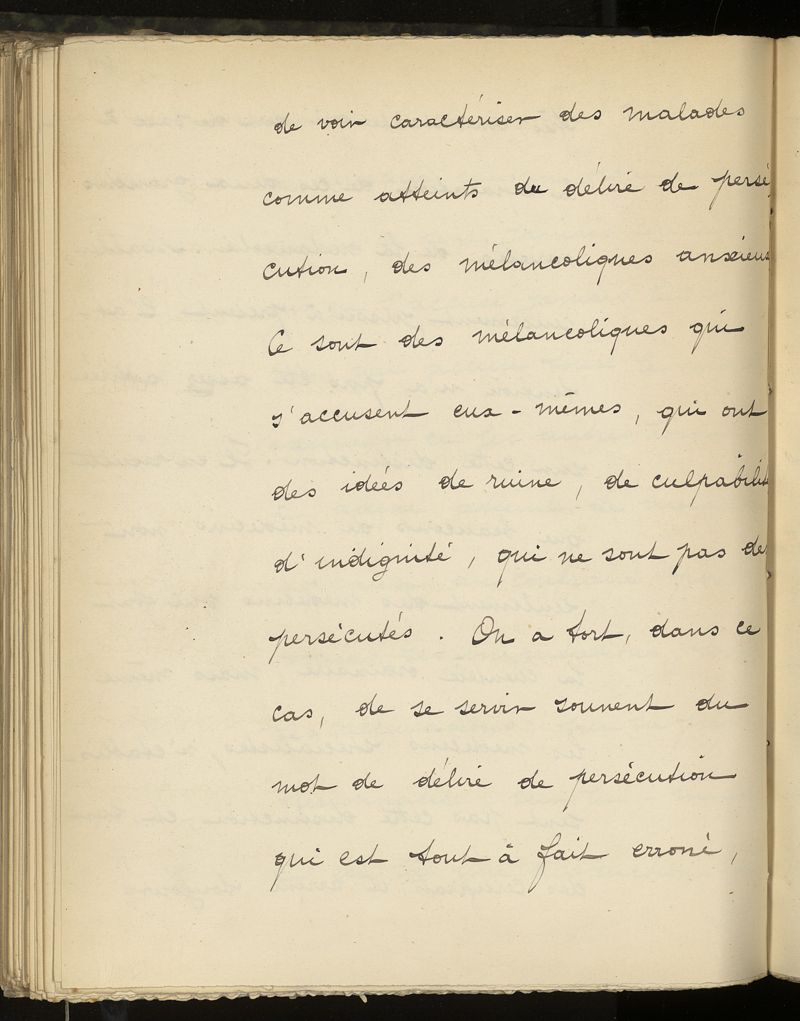 de voir caractériser des malades
comme atteints du délire de persé
cution, des mélancoliques anxieux
Ce sont des mélancoliques qui
s'accusent eux-mêmes, qui ont
des idées de ruine, de culpabilit
d'indignité, qui ne sont pas de
persécutés. On a tort, dans ce
cas, de se servir souvent du
mot de délire de persécution
qui est tout à fait erroné,